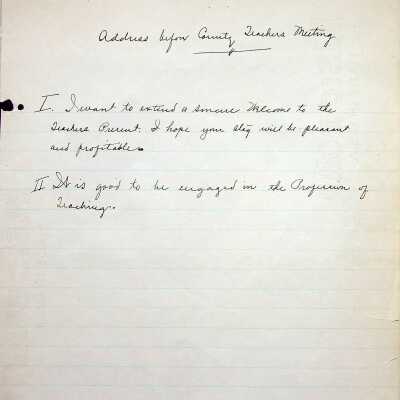 Address before County Teachers Meeting
I. I want to extend a sincere Welcome to the
Teachers Present. I hope your stay will be pleasant
and profitable.
II It is good to be engaged in the Profession of
Teaching.